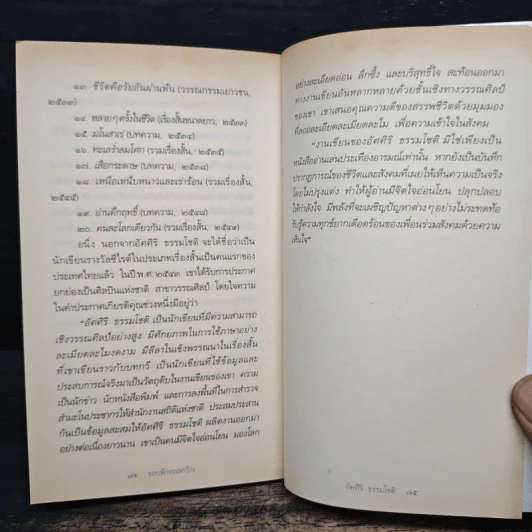 ๑๓. ชีวิตคือวัยอันผ่านพ้น (วรรณกรรมเยาวชน,
๒๕๓๓)
๑๔. หลายๆครั้งในชีวิต (เรื่องสั้นขนาดยาว, ๒๕๓๓)
๑๕. มโนสาเร่ (บทความ, ๒๕๓๔)
๑๖. ทะเลร่ำลมโศก (รวมเรื่องสั้น, ๒๕๓๕)
๑๗. เสือกระดาษ (บทความ, ๒๕๓๘)
๑๘. เหนือเหน็บหนาวและเร่าร้อน (รวมเรื่องสั้น,
๒๕๔๕)
๑๙. อ่านตึกฤทธิ์ (บทความ, ๒๕๔๘)
๒๐. คนละโลกเดียวกัน (รวมเรื่องสั้น, ๒๕๔๙)
อนึ่ง นอกจากอัศศิริ ธรรมโชติ จะได้ชื่อว่าเป็น
นักเขียนรางวัลซีไรต์ในประเภทเรื่องสั้นเป็นคนแรกของ
ประเทศไทยแล้ว ในปีพ.ศ.๒๕๔๓ เขาได้รับการประกาศ
ยกย่องเป็นศิลปินแห่งชาติ สาขาวรรณศิลป์ โดยใจความ
ในคำประกาศเกียรติคุณช่วงหนึ่งมีอยู่ว่า
"อัศศิริ ธรรมโชติ เป็นนักเขียนที่มีความสามารถ
เชิงวรรณศิลป์อย่างสูง มีศักยภาพในการใช้ภาษาอย่าง
ละเมียดละไมงดงาม มีลีลาในเชิงพรรณนาในเรื่องสั้น
ที่เขาเขียนราวกับบทกวี เป็นนักเขียนที่ใช้ข้อมูลและ
ประสบการณ์จริงมาเป็นวัตถุดิบในงานเขียนของเขา ความ
เป็นนักข่าว นักหนังสือพิมพ์ และการลงพื้นที่ในการสำรวจ
สำมะโนประชากรให้สำนักงานสถิติแห่งชาติ ประสมประสาน
กันเป็นข้อมูลสะสมให้อัศศิริ ธรรมโชติ ผลิตงานออกมา
อย่างต่อเนื่องยาวนาน เขาเป็นคนมีจิตใจอ่อนโยน มองโลก
๗๔ ขอบฟ้าทะเลกว้าง
อย่างละเอียดอ่อน ลึกซึ้ง และบริสุทธิ์ใจ สะท้อนออกมา
ทางงานเขียนอันหลากหลายด้วยชั้นเชิงทางวรรณศิลป์
ของเขา เขาเสนอคุณความดีของสรรพชีวิตด้วยมุมมอง
ศิลออละเอียดละเมียดละไม เพื่อความเข้าใจในสังคม
"งานเขียนของอัศศิริ ธรรมโชติ มิใช่เพียงเป็น
หนังสืออ่านเล่นประเทืองอารมณ์เท่านั้น หากยังเป็นบันทึก
ปรากฏการณ์ของชีวิตและสังคมที่เผยให้เห็นความเป็นจริง
โดยไม่ปรุงแต่ง ทำให้ผู้อ่านมีจิตใจอ่อนโยน ปลุกปลอบ
ให้กำลังใจ มีพลังที่จะเผชิญปัญหาต่างๆอย่างไม่ระทดท้อ
รับรู้ความทุกข์ยากเดือดร้อนของเพื่อนร่วมสังคมด้วยความ
เห็นใจ"
อัศศิริ ธรรมโชติ ๗๕